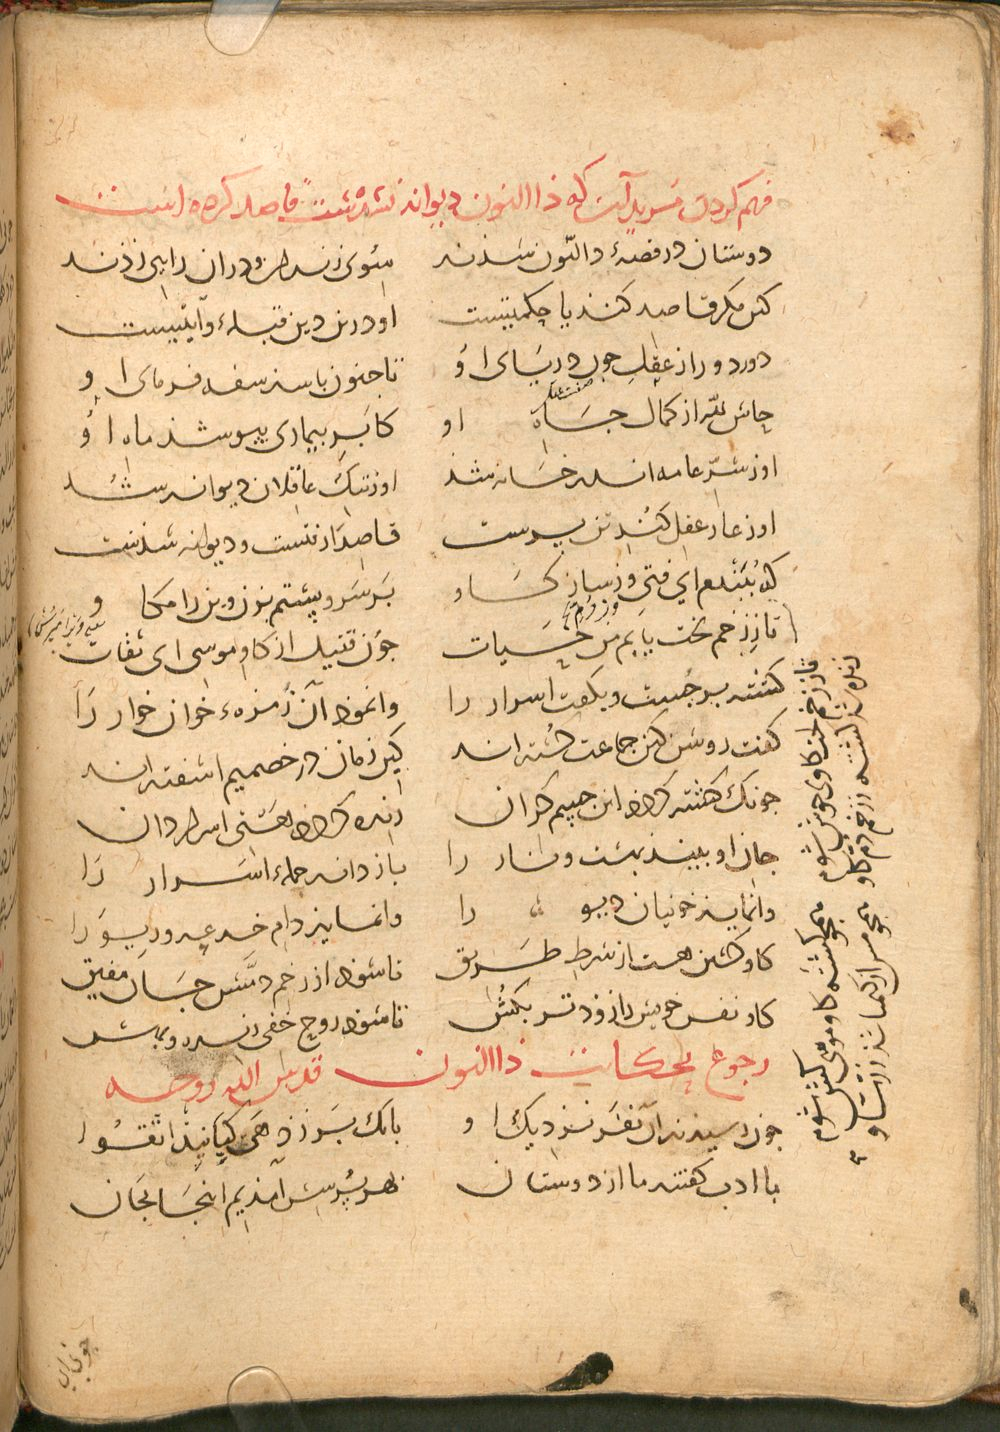 فهم کردن مریدان که ذاالنون دیوانه نشدست قاصد کرده است
دوستان در قصهٔ ذاالنّون شذند سوی زندان و در ان رایی زذند
کین مکر قاصد کند یا حکمتیست او درین دین قبلهٔ و آیتیست
دور دور از عقلِ چون دریای او تا جنون باشذ سفه فرمای او
حاش لله از کمال جاه او کابرِ بیماری بپوشذ ماه او
او ز شرّ عامه اندر خانه شذ او ز ننک عاقلان دیوانه شذ
او ز عار عقل کند تن پرست قاصدا رفتست و دیوانه شذست
که ببندم ای فتی وز ساز کاو بر سر و پشتم بزن وین را مکاو
تا ز زخم لخت یابم من حیات چون قتیل از کاو موسی ای ثقات
کشته بر جست و بکفت اسرار را وانمود آن زمرهٔ خوان خوار را
کفت روشن کین جماعت کشته اند کین زمان در خصمیم اشفته اند
چونک کشته کردد این جسم کران زنده کردد هستی اسرار دان
جان او بیند بهشت و نار را باز داند جملهٔ اسرار را
وانماید خونیان دیو را وانماید دام خدعه و ریو را
کاو کشتن هست از شرط طریق تا شود از زخم دمّش جان مفیق
کاو نفس خویش را زوذتر بکش تا شود روح خفی زنده و بهش
رجوع بحکایت ذاالنون قدس الله روحه
چون رسیدند آن نفر نزدیک او بانک بر زذ هی کیانیذ اتقوا
با ادب کفتند ما از دوستان بهر پرسش آمذیم اینجا بجان
تا ز زخم لخت کاوی خوش شوم همچو کشتهٔ کاو موسی کش شوم
زنده شذ کشته ز زخم دم کاو همچو مس از کیمیا شذ زر ساو